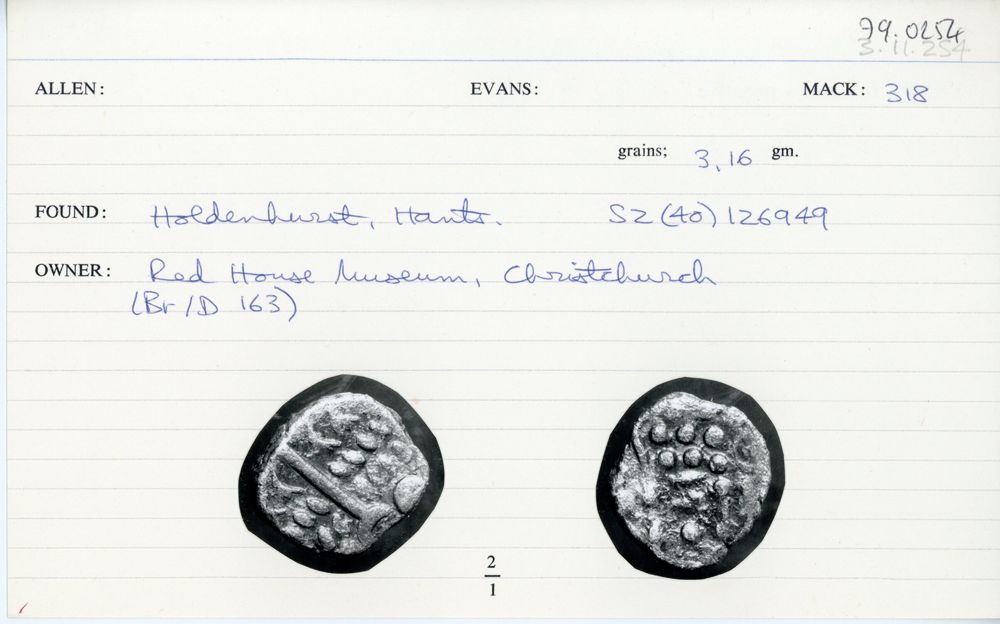 79.0254
3.11.254
ALLEN: EVANS: MACK: 318
grains; 3,16 gm.
FOUND: Holdenhurst, Hants. SZ (40) 126949
OWNER: Red House Museum, Christchurch
(Br/D 163)
2
1